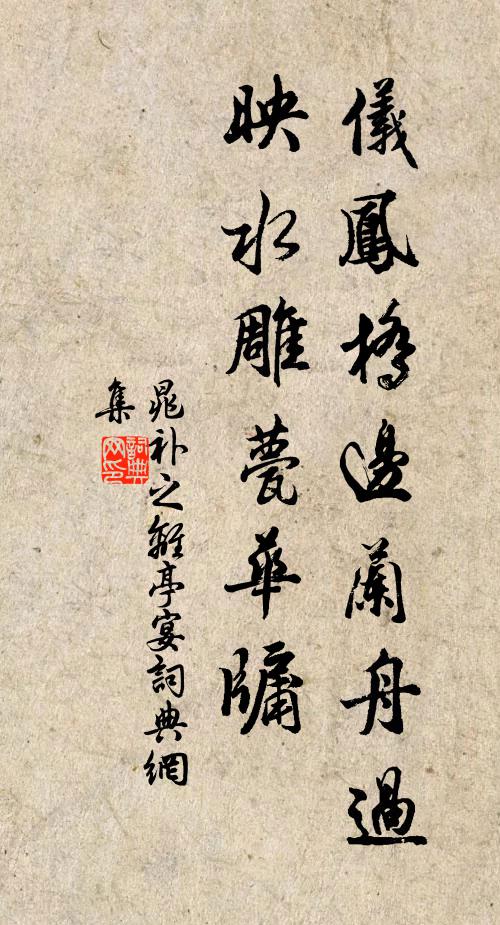 儀鳳橋邊蘭舟過
映水雕甍華牖
晁补之離亭宴詞典網
集
詞典網印